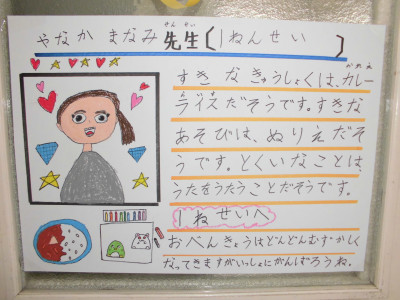 やなか まなみ 先生(せんせい)〔1ねんせい 〕
すきなきゅうしょくは、カレー(かれえ)
ライス(らいす)だそうです。すきな
あそびは、ぬりえだそ
うです。とくいなことは、
うたをうたうことだそうです。
1ねせいへ
おべんきょうはどんどんむずかしく
なってきますがいっしょにがんばろうね。